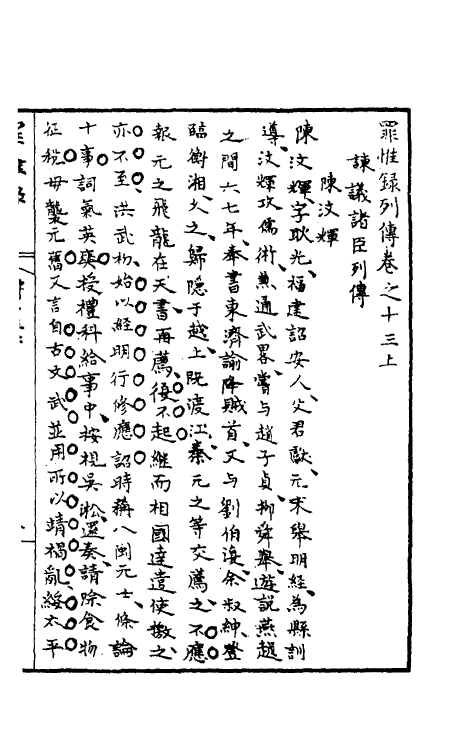 罪惟錄列傳卷之十三上
諫議諸臣列傳
陳汶輝
陳汶輝字耿光福建詔安人父君獻元末舉明經為縣訓
導汶輝攻儒術兼通武畧嘗与趙子貞柳舜舉遊説燕趙
之間六七年奉書東濟諭降賊首又与劉伯溫余叔紳登
臨衡湘久之歸隱于越上既渡江秦元之等交薦之不應
報元之飛龍在天書再薦復不起繼而相國達遣使徵之
亦不至洪武初始以經明行修應詔時稱八閩元士條論
十事詞氣英爽授禮科給事中按視吳淞還奏請除食物
征稅毋襲元舊又言自古文武並用所以靖禍亂綏太平